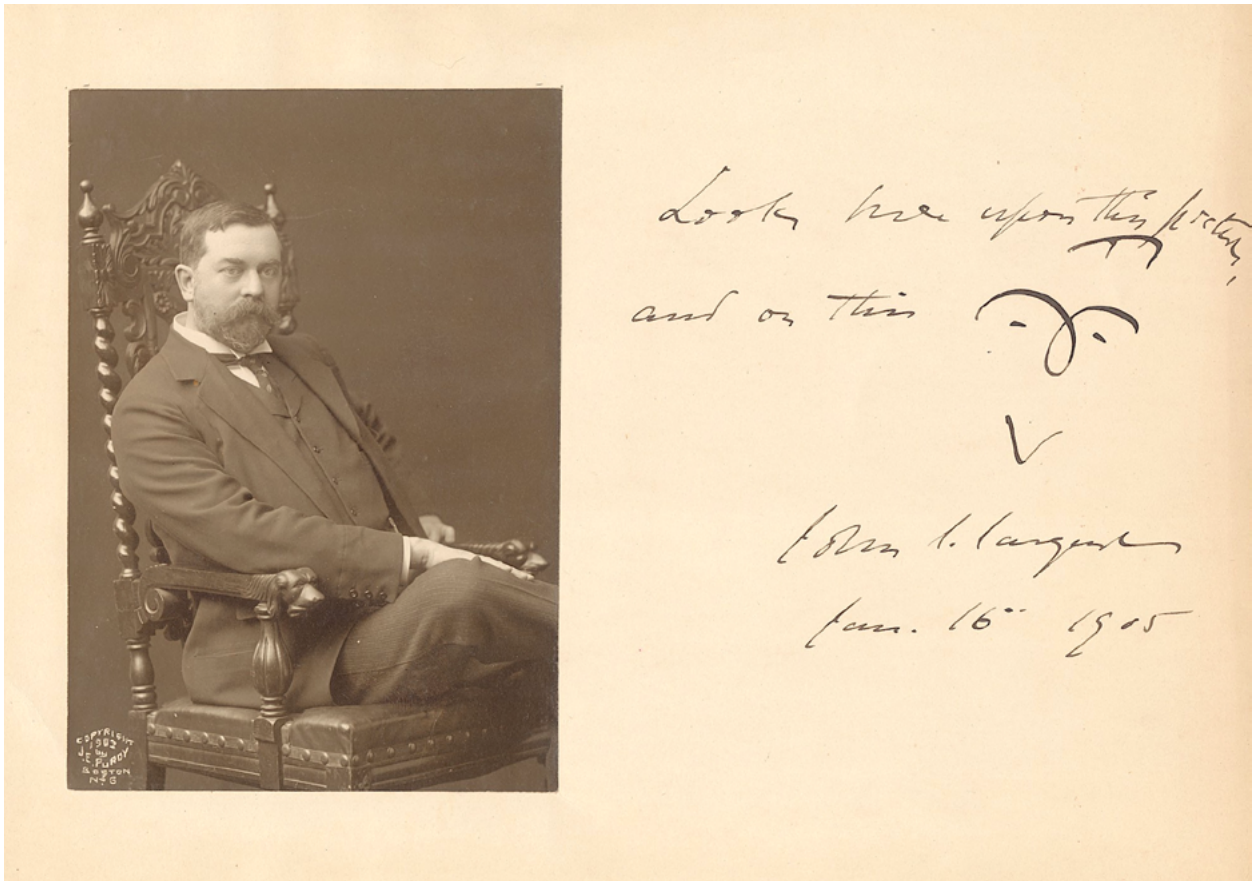 Look here upon this picture,
and on this
John S. Sargent
Jan. 16" 1905
COPYRIGHT
1903
by
J. E. PURDY
BOSTON